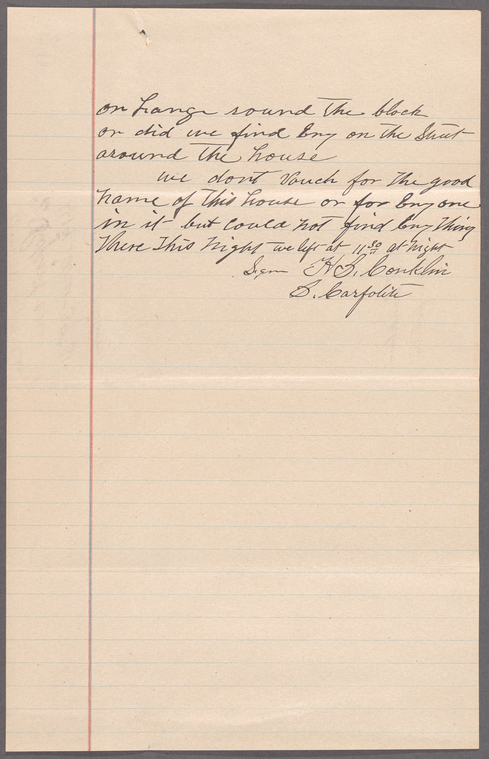 or hange round the block
or did we find Eny on the Street
around the house
we dont Vouch for the good
name of this house or for Eny one
in it but could not find Eny thing
there this night we left at 11 30 at night
Sign H. S. Conklin
S. Carfolite